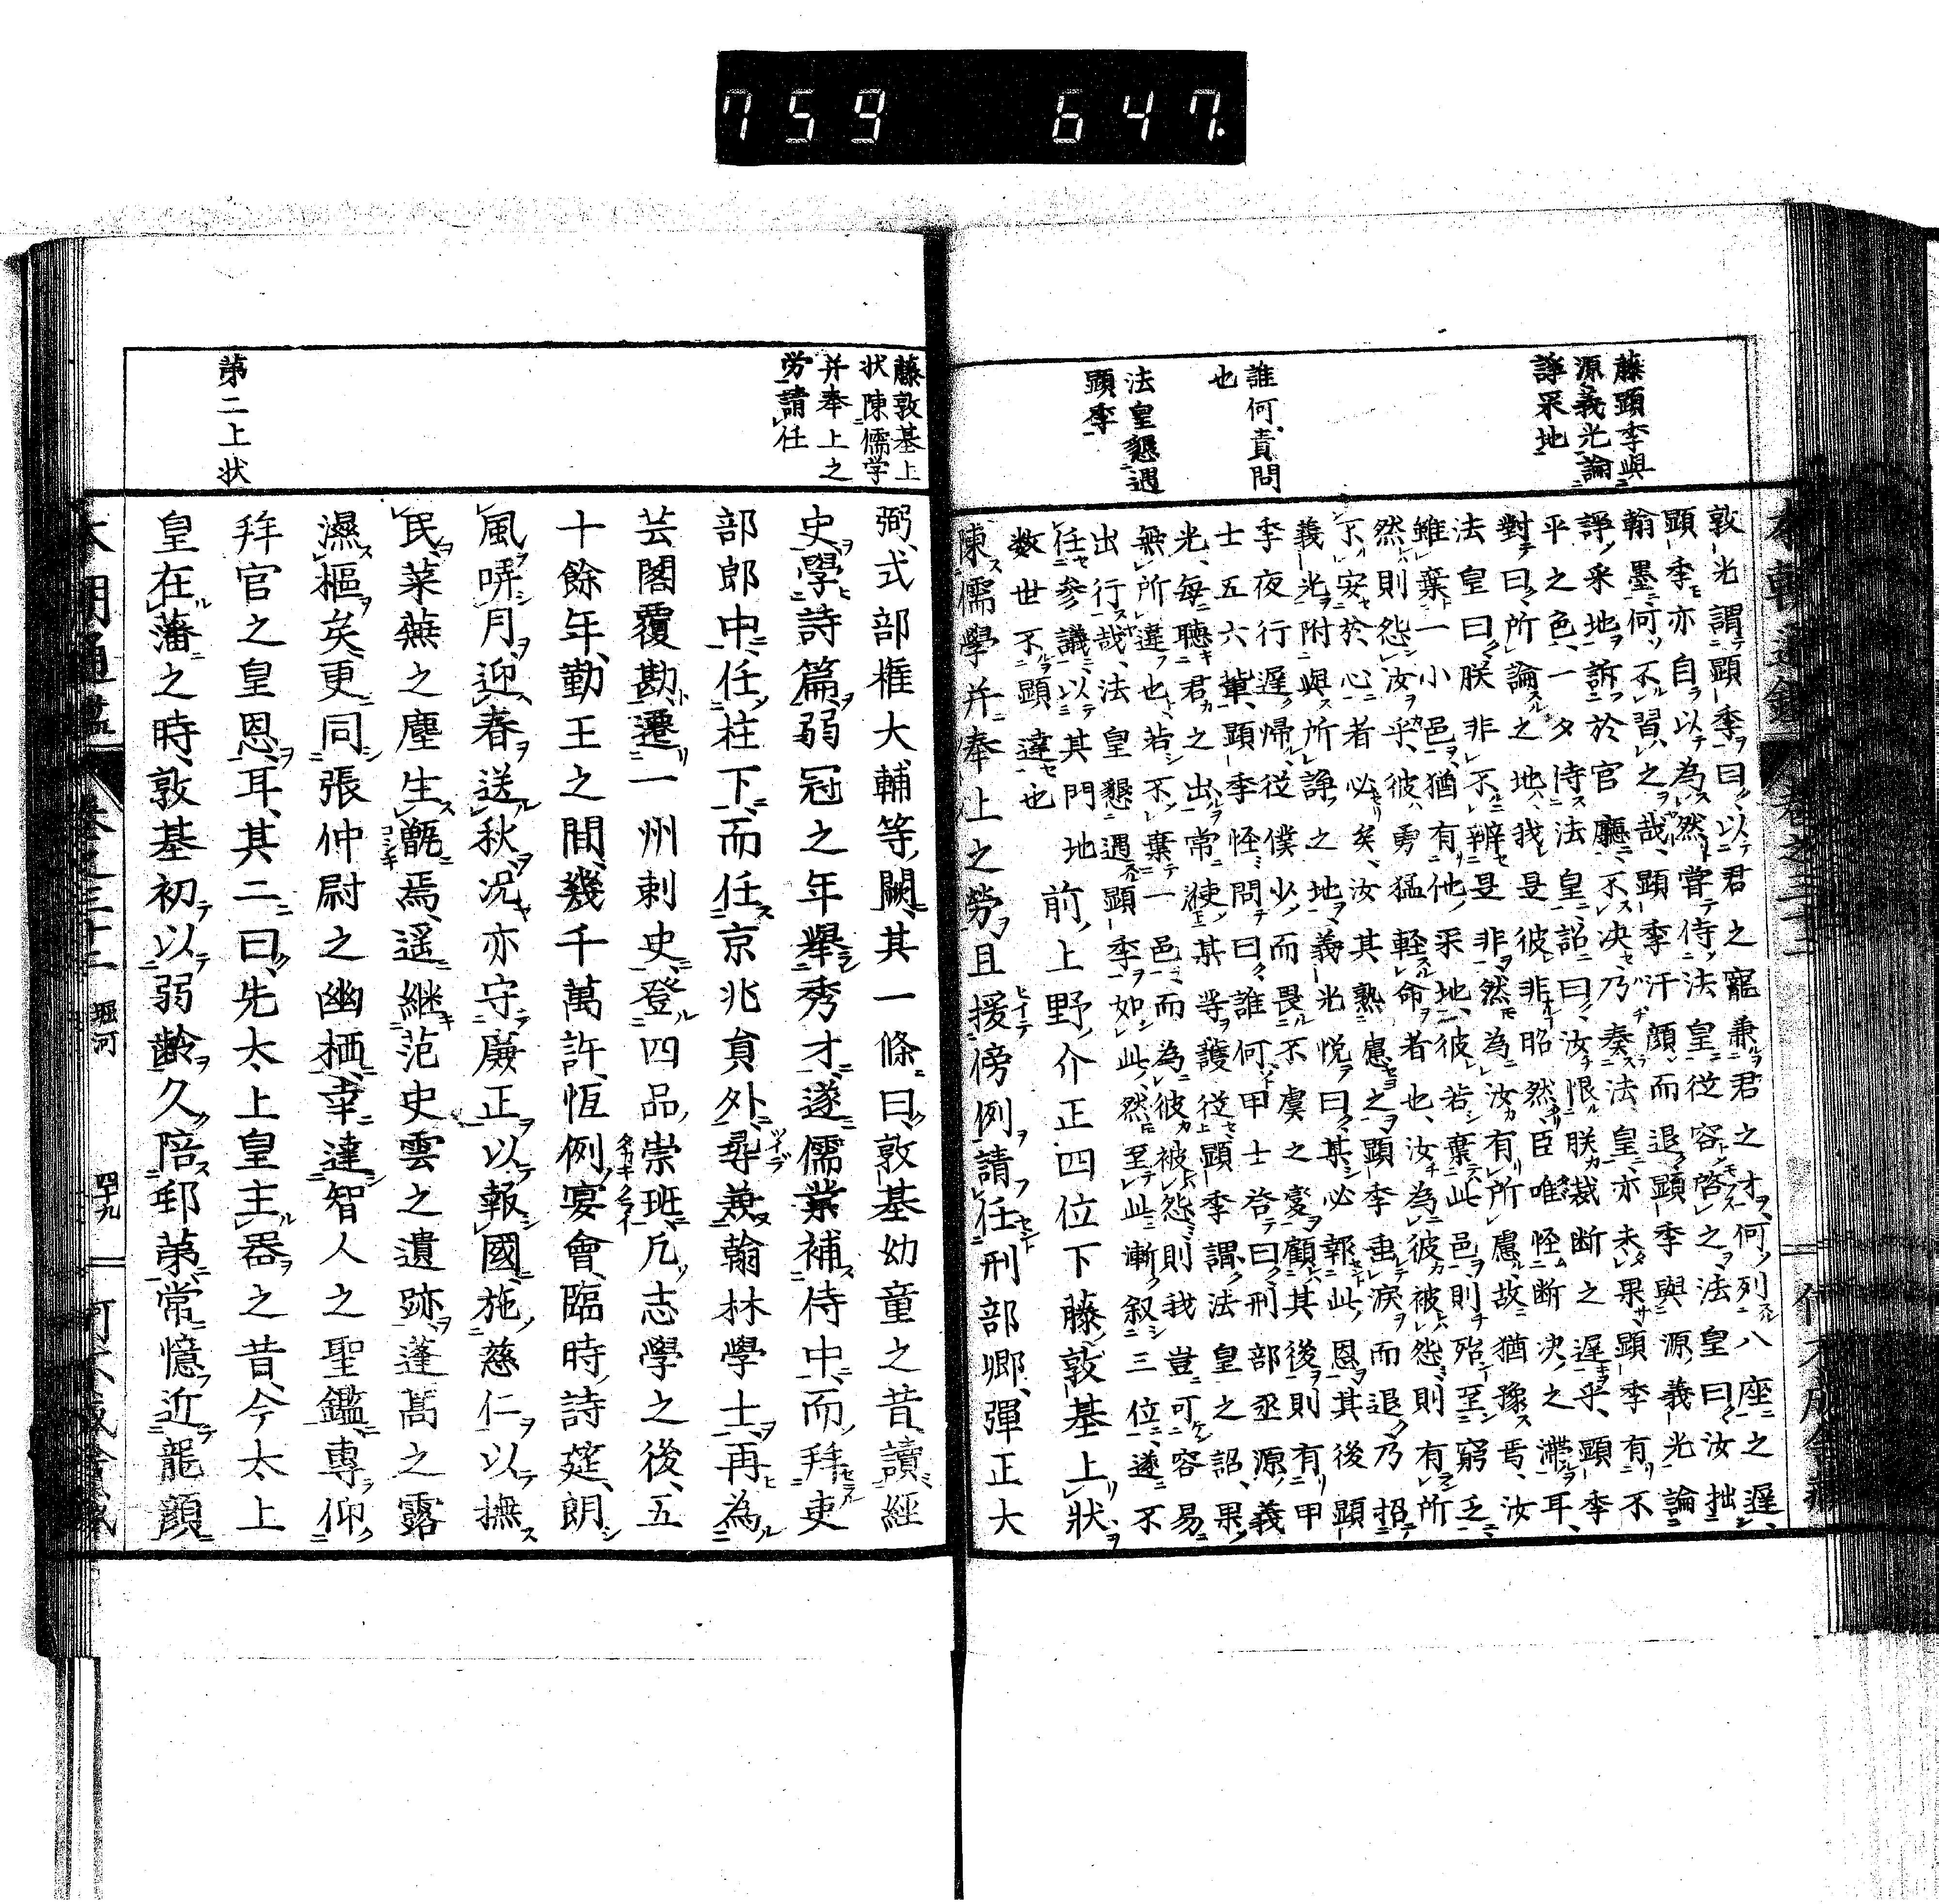 藤顯季與
源義光論
諍采地
誰何責問
也
法皇懇遇
顯季
敦光謂顯季曰以君之寵兼君之才何列八座之遲
顯季亦自以為然嘗侍法皇從容啓之法皇曰汝拙
翰墨何不習之哉顯季汗顔而退顯季與源義光論
諍采地訴於官廳不决乃奏法皇亦未果顯季有不
平之色一夕侍法皇詔曰汝恨朕裁断之遲乎顯季
對曰所論之地我是彼非昭然臣唯怪断决之滯耳
法皇曰朕非不辨是非然為汝有所慮故猶豫焉汝
雖棄一小邑猶有他采地彼若棄此邑則殆至窮乏
然則怨汝乎彼勇猛軽命者也汝為彼被怨則有所
不安於心者必矣汝其熟慮之顯季垂涙而退乃招
義光附與所諍之地義光悅曰某必報此恩其後顯
季夜行遲歸從僕少而畏不虞之変顧其後則有甲
士五六輩顯季怪問曰誰何甲士答曰刑部丞源義
光每聴君之出常使某等護從顯季謂法皇之詔果
無所違也若不棄一邑而為彼被怨則我豈可容易
出行哉法皇懇遇顯季如此然至此漸叙三位遂不
任参議以其門地
数世不顯達也
前上野介正四位下藤敦基上狀
陳儒學并奉上之勞且援傍例請任刑部卿彈正大
藤敦基上
状陳儒学
并奉上之
労請任
第二上状
弼式部権大輔等闕其一條曰敦基幼童之昔讀經
史學詩篇弱冠之年舉秀才遂儒業補侍中而拜吏
部郎中任柱下而任京兆員外尋兼翰林學士再為
芸閣覆勘遷一州刺史登四品崇班凡志學之後五
十餘年勤王之間幾千萬許恆例宴會臨時詩筵朗
風哢月迎春送秋况亦守廉正以報國施慈仁以撫
民菜蕪之塵生甑焉遥継范史雲之遺跡蓬蒿之露
濕樞矣更同張仲尉之幽栖幸達智人之聖鑑專仰
拜官之皇恩耳其二曰先太上皇主器之昔今太上
皇在藩之時敦基初以弱齢久陪邸第常憶近龍顔
堀河
四十九